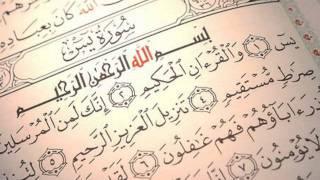 ٱللَّهَ كَانَ بِعِبَادِهِۦ
سُورَةُ يسٓ
بِسْمِ ٱللَّهِ ٱلرَّحْمَٰنِ ٱلرَّحِيمِ
يسٓ ١ وَٱلْقُرْءَانِ ٱلْحَكِيمِ ٢ إِنَّكَ لَمِنَ ٱلْمُرْسَلِينَ
صِرَٰطٍ مُّسْتَقِيمٍ ٤ تَنزِيلَ ٱلْعَزِيزِ ٱلرَّحِيمِ ٥
ءَابَآؤُهُمْ فَهُمْ غَٰفِلُونَ ٦ لَقَدْ
لَا يُؤْمِنُونَ ٧